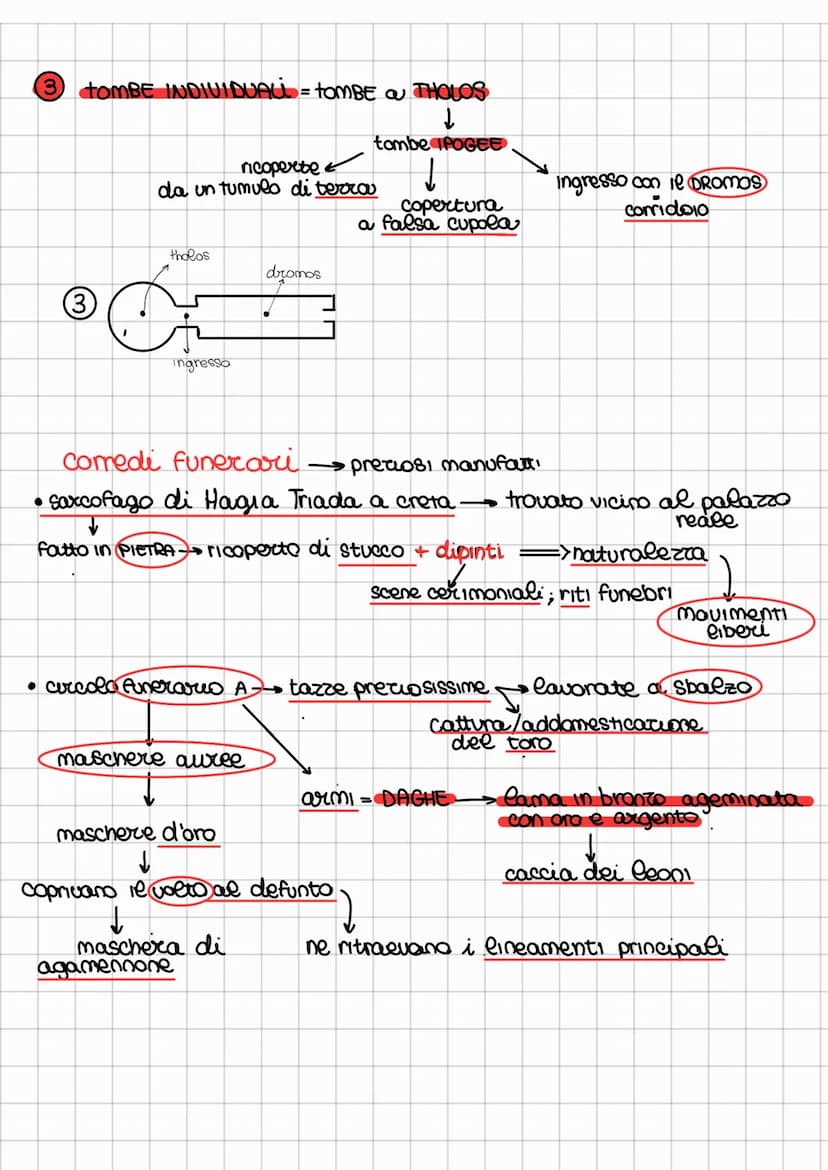 3 TOMBE INDIVIDUALI = TOMBE a THOLOS
↓
tombe IPOGEE
ricoperte
da un tumulo di terra
copertura
a falsa cupola
ingresso con il DROMOS
corridoio
3
tholos
dromos
ingresso
corredi funerari → preziosi manufatti
• sarcofago di Hagia Triada a creta → trovato vicino al palazzo
reale
fatto in PIETRA → ricoperto di stucco + dipinti ⇒ naturalezza
scene cerimoniali; riti funebri
movimenti
liberi
• circolo funerario A → tazze preziosissime → lavorate a sbalzo
cattura/addomesticazione
del toro
maschere auree
armi = DAGHE → lama in bronzo ageminata
con oro e argento
maschere d'oro
caccia dei leoni
coprivano il volto al defunto
maschera di
agamennone
ne ritraevano i lineamenti principali